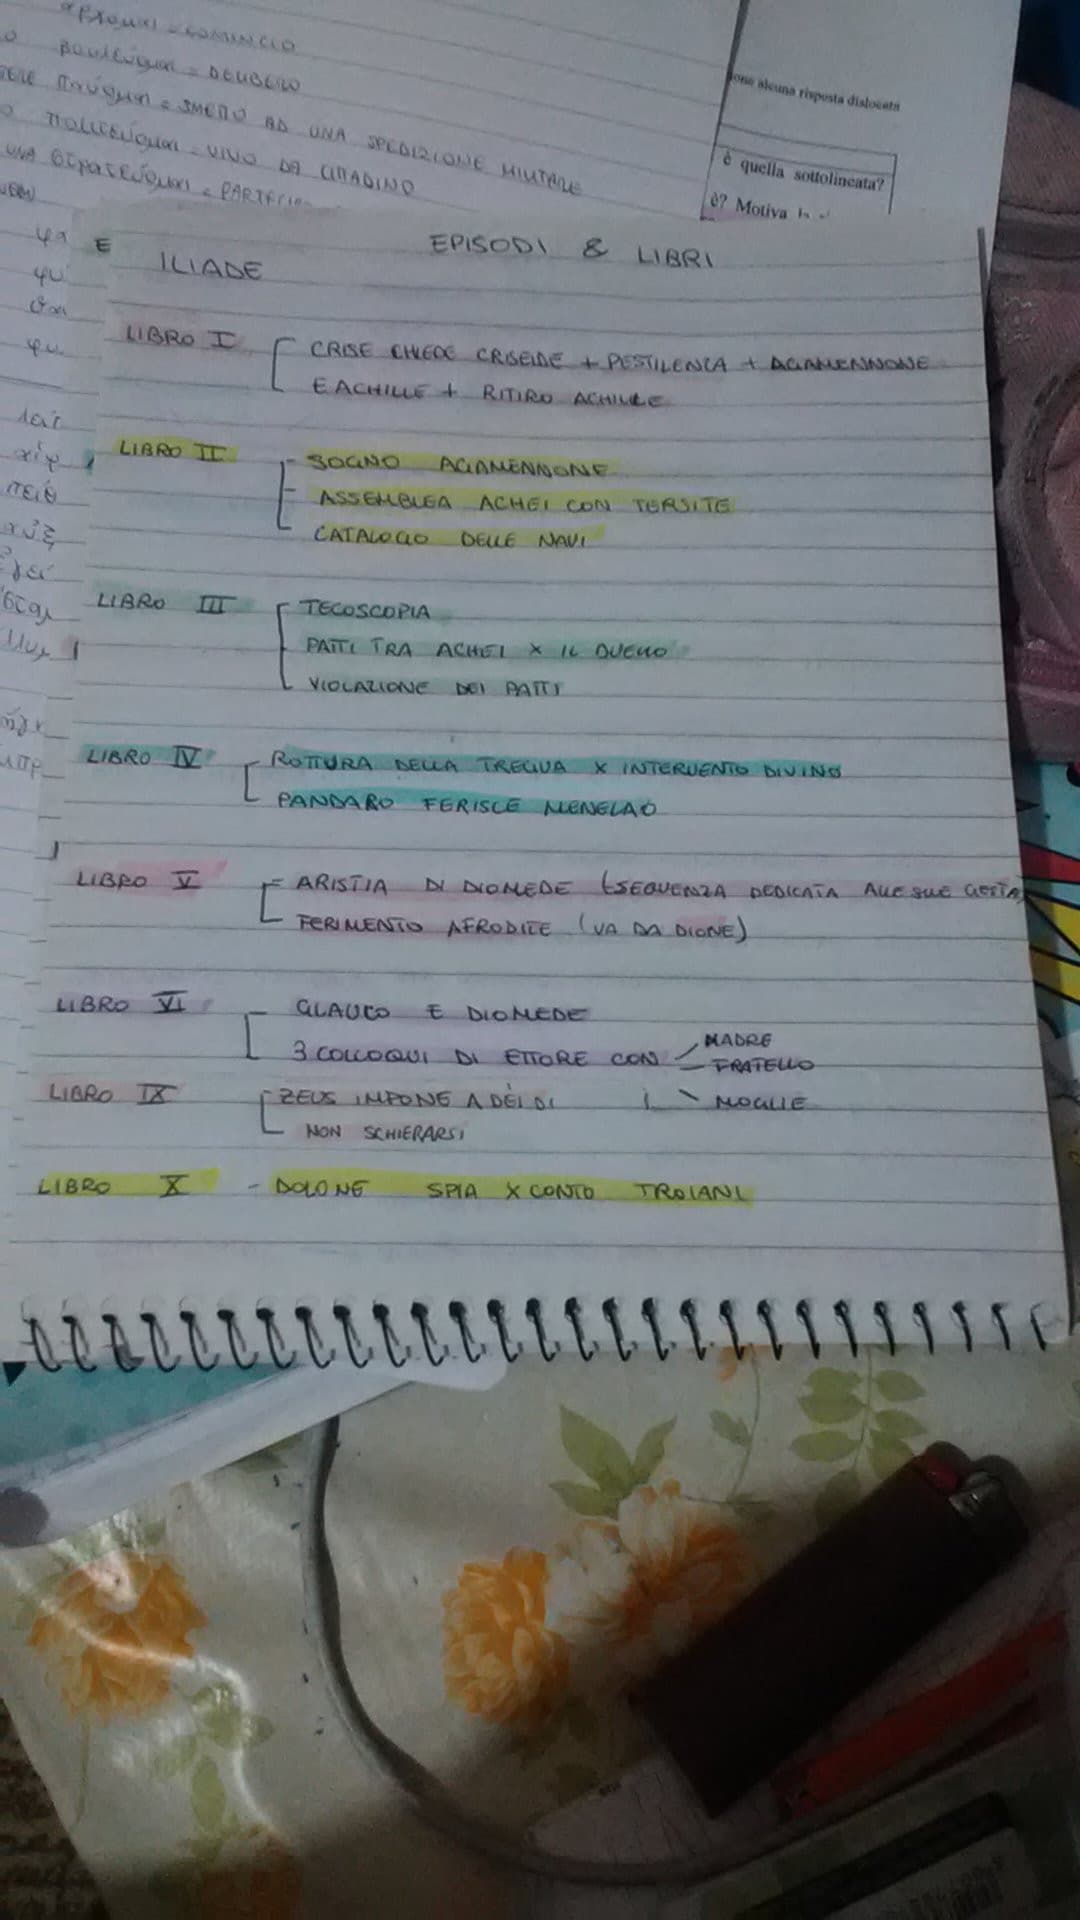 = COMINCIO
= DELIBERO
= SMETTO AD UNA SPEDIZIONE MILITARE
= VIVO DA CITTADINO
UNA
one alcuna risposta dislocata
è quella sottolineata?
è? Motiva
E
EPISODI & LIBRI
ILIADE
LIBRO I
CRISE CHIEDE CRISEIDE + PESTILENZA + AGAMENNONE
E ACHILLE + RITIRO ACHILLE
LIBRO II
- SOGNO AGAMENNONE
- ASSEMBLEA ACHEI CON TERSITE
CATALOGO DELLE NAVI
LIBRO III
TECOSCOPIA
PATTI TRA ACHEI X IL DUELLO
VIOLAZIONE DEI PATTI
LIBRO IV
ROTTURA DELLA TREGUA X INTERVENTO DIVINO
PANDARO FERISCE MENELAO
LIBRO V
- ARISTIA DI DIOMEDE (SEQUENZA DEDICATA ALLE SUE GESTA)
- FERIMENTO AFRODITE (VA DA DIONE)
LIBRO VI
GLAUCO E DIOMEDE
3 COLLOQUI DI ETTORE CON
MADRE
FRATELLO
MOGLIE
LIBRO IX
ZEUS IMPONE A DÈI DI
NON SCHIERARSI
LIBRO X
- DOLONE SPIA X CONTO TROIANI